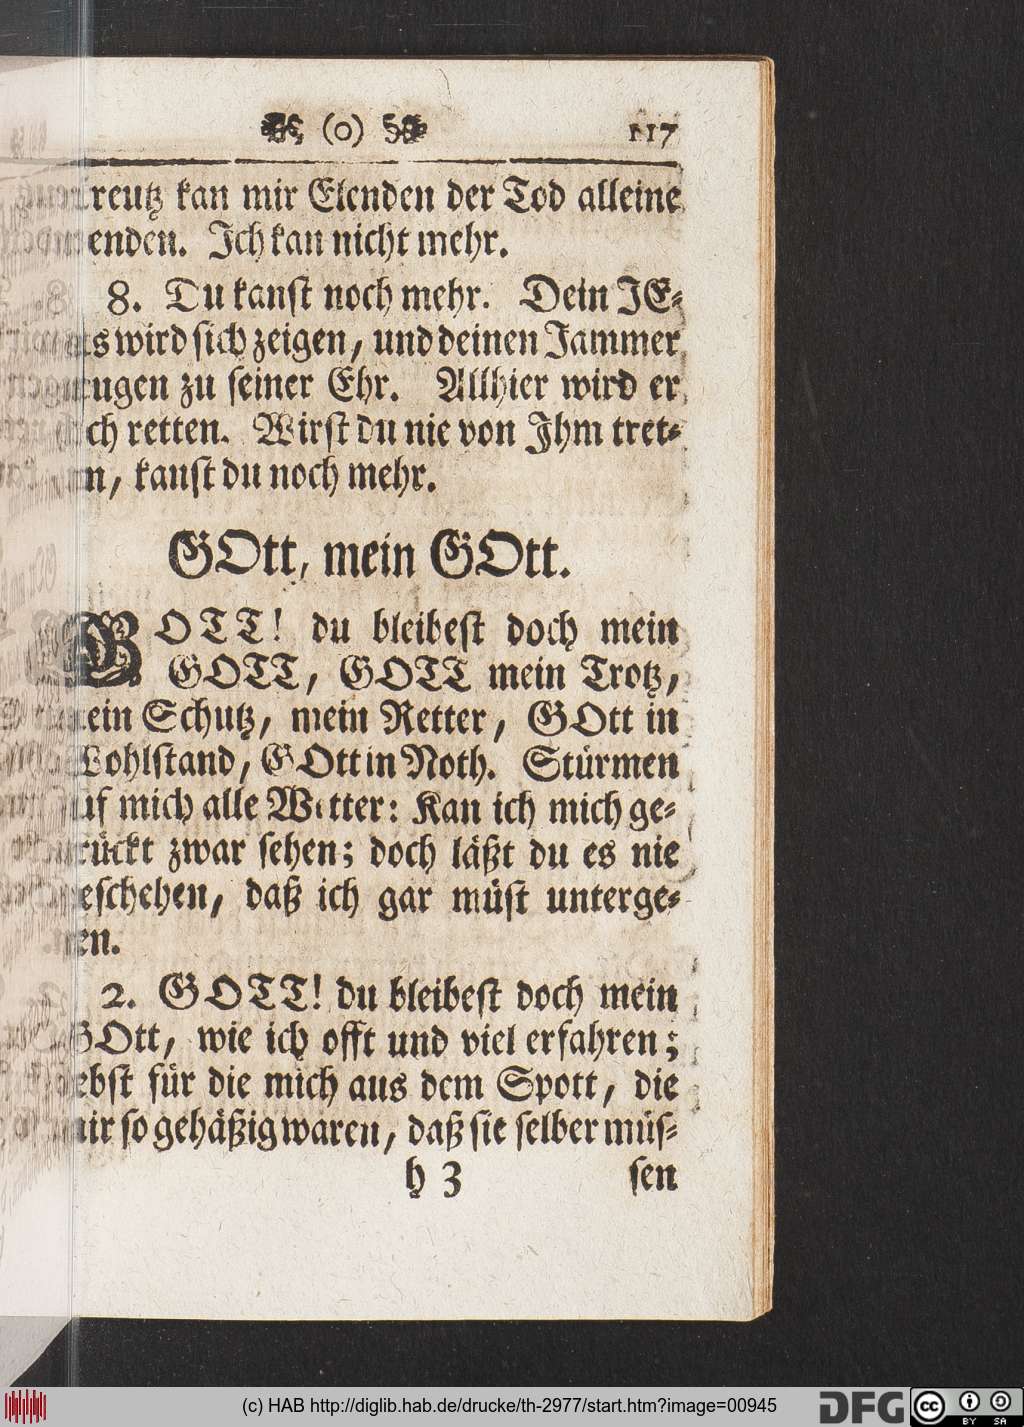 (o) 117
reutz kan mir Elenden der Tod alleine
enden. Ich kan nicht mehr.
8. Du kanst noch mehr. Dein JE-
us wird sich zeigen, und deinen Jammer
eugen zu seiner Ehr. Allhier wird er
ch retten. Wirst du nie von Ihm tret-
n, kanst du noch mehr.
GOtt, mein GOtt.
GOTT! du bleibest doch mein
GOTT, GOTT mein Trotz,
ein Schutz, mein Retter, GOtt in
Wohlstand, GOtt in Noth. Stürmen
uf mich alle Wetter: Kan ich mich ge-
rückt zwar sehen; doch läßt du es nie
eschehen, daß ich gar müst unterge-
en.
2. GOTT! du bleibest doch mein
GOtt, wie ich offt und viel erfahren;
ebst für die mich aus dem Spott, die
mir so gehäßig waren, daß sie selber müs-
h 3 sen
(c) HAB http://diglib.hab.de/drucke/th-2977/start.htm?image=00945
DFG cc BY SA